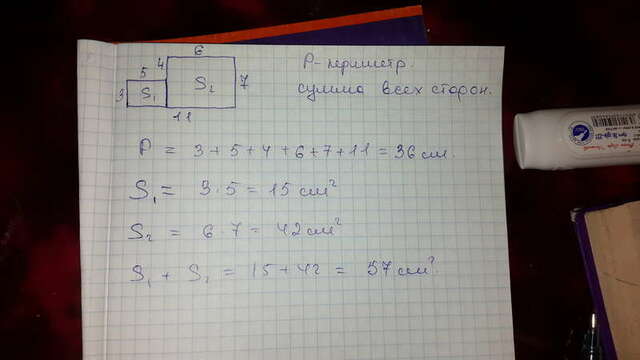 6
4
5
S₂
7
3
S₁
11
P - периметр.
сумма всех сторон.
P = 3 + 5 + 4 + 6 + 7 + 11 = 36 см.
S₁ = 3 · 5 = 15 см²
S₂ = 6 · 7 = 42 см²
S₁ + S₂ = 15 + 42 = 57 см².